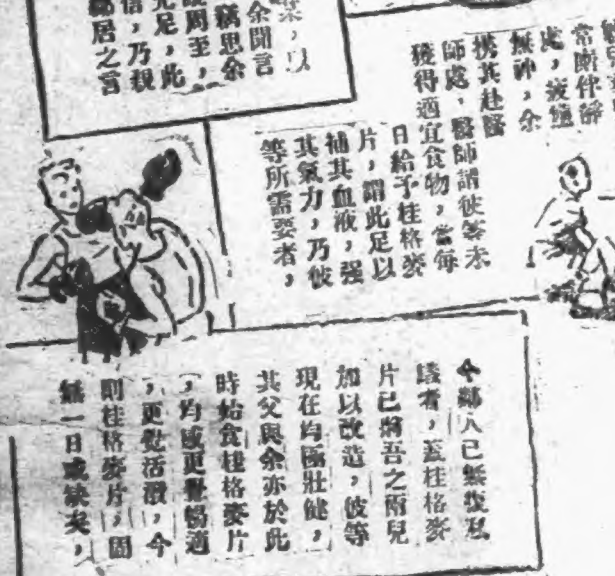 ,以
余聞言
竊思余
周至,
足,此
信,乃親
居之言
處,疲憊
無神,余
携其赴醫
師處,醫師謂彼等未
獲得適宜食物,當每
日給予桂格麥
片,謂此足以
補其血液,强
其氣力,乃彼
等所需要者,
今鄰人已無復私
議者,蓋桂格麥
片已將吾之兩兒
加以改造,彼等
現在均極壯健,
其父與余亦於此
時始食桂格麥片
,均感更覺暢適
,更覺活潑,今
則桂格麥片,固
無一日或缺矣,